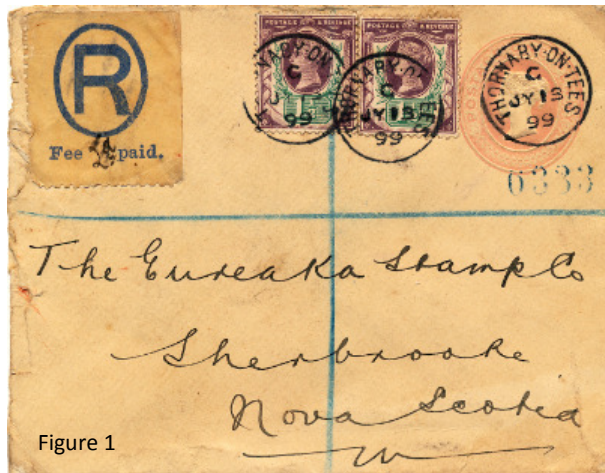 R
Fee paid.
POSTAGE & REVENUE
POSTAGE & REVENUE
THORNABY-ON-TEES
C
99
THORNABY-ON-TEES
C
JY
99
THORNABY-ON-TEES
C
JY
99
6333
The Eureaka Stamp Co
Sherbrooke
Nova Scotia
Figure 1